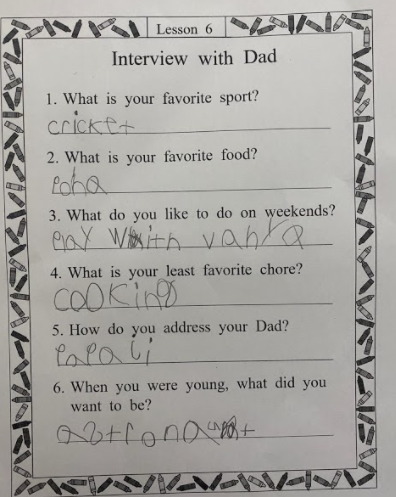 Lesson 6
Interview with Dad
1. What is your favorite sport?
cricket
2. What is your favorite food?
Poha
3. What do you like to do on weekends?
Play with vanya
4. What is your least favorite chore?
cooking
5. How do you address your Dad?
Papa Ji
6. When you were young, what did you
want to be?
astronaut